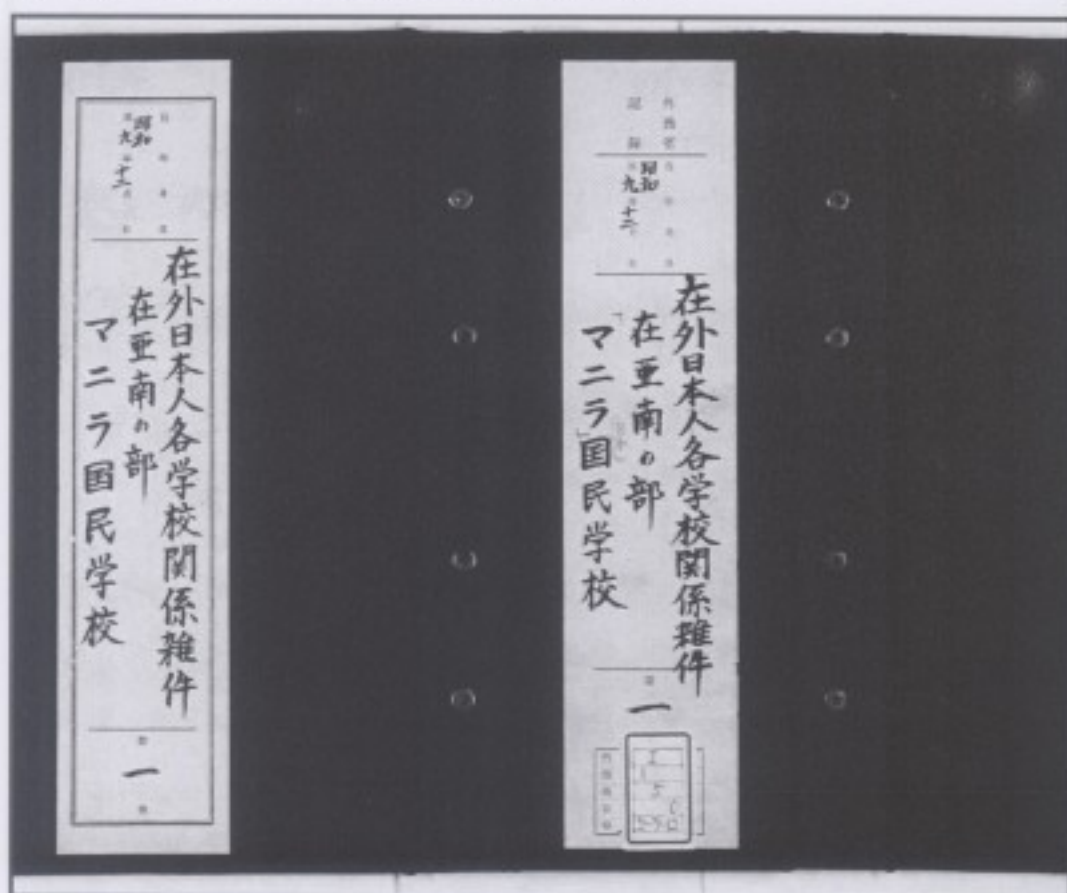 外務省
記録
昭和
九 十二
在外日本人各学校関係雑件
在亜南ノ部
「マニラ」国民学校
一
昭和
九 十二
在外日本人各学校関係雑件
在亜南ノ部
マニラ国民学校
一